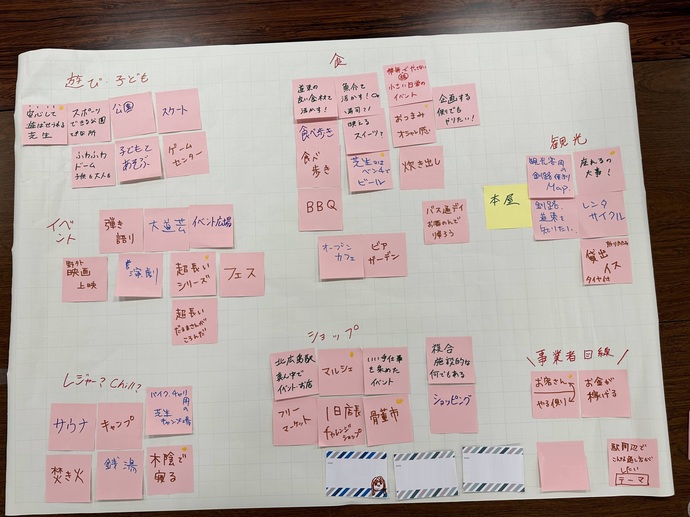 遊び・子ども
安心して
遊ばせられる
芝生
スポーツ
できる公園
公園
スケート
ふわふわ
ドーム
子供も大人も
子どもと
あそぶ
ゲーム
センター
食
道東の
良い食材で
活かす!
魚介で
活かす!
小さい日常の
イベント
企画する
何でも
やりたい!
食べ歩き
映える
スイーツで
おつまみ
食べ
歩き
芝生では
ベンチで
ビール
炊き出し
BBQ
バス通デイ
お酒のんで
帰ろう
オープン
カフェ
ビア
ガーデン
本屋
観光
観光客用の
釧路便利
Map
座れるの
大事!
釧路、
道東を
レンタ
サイクル
貸出
イス
イベント
弾き
語り
大道芸
イベント広場
野外
映画
上映
演劇
超長い
シリーズ
フェス
超長い
だるまさんが
ころんだ
ショップ
イベント・お店
マルシェ
いい手仕事
を集めた
イベント
複合
施設的な
何でもある
フリー
マーケット
1日店長
チャレンジ
ショップ
骨董市
ショッピング
レジャー?Chill?
サウナ
キャンプ
バイク、チャリ
用の
芝生
キャンプ場
焚き火
銭湯
木陰で
寝る
\事業者目線/
お客さん
やる側り
お金が
稼げる
駅周辺で
こんな過し方が
したい
テーマ